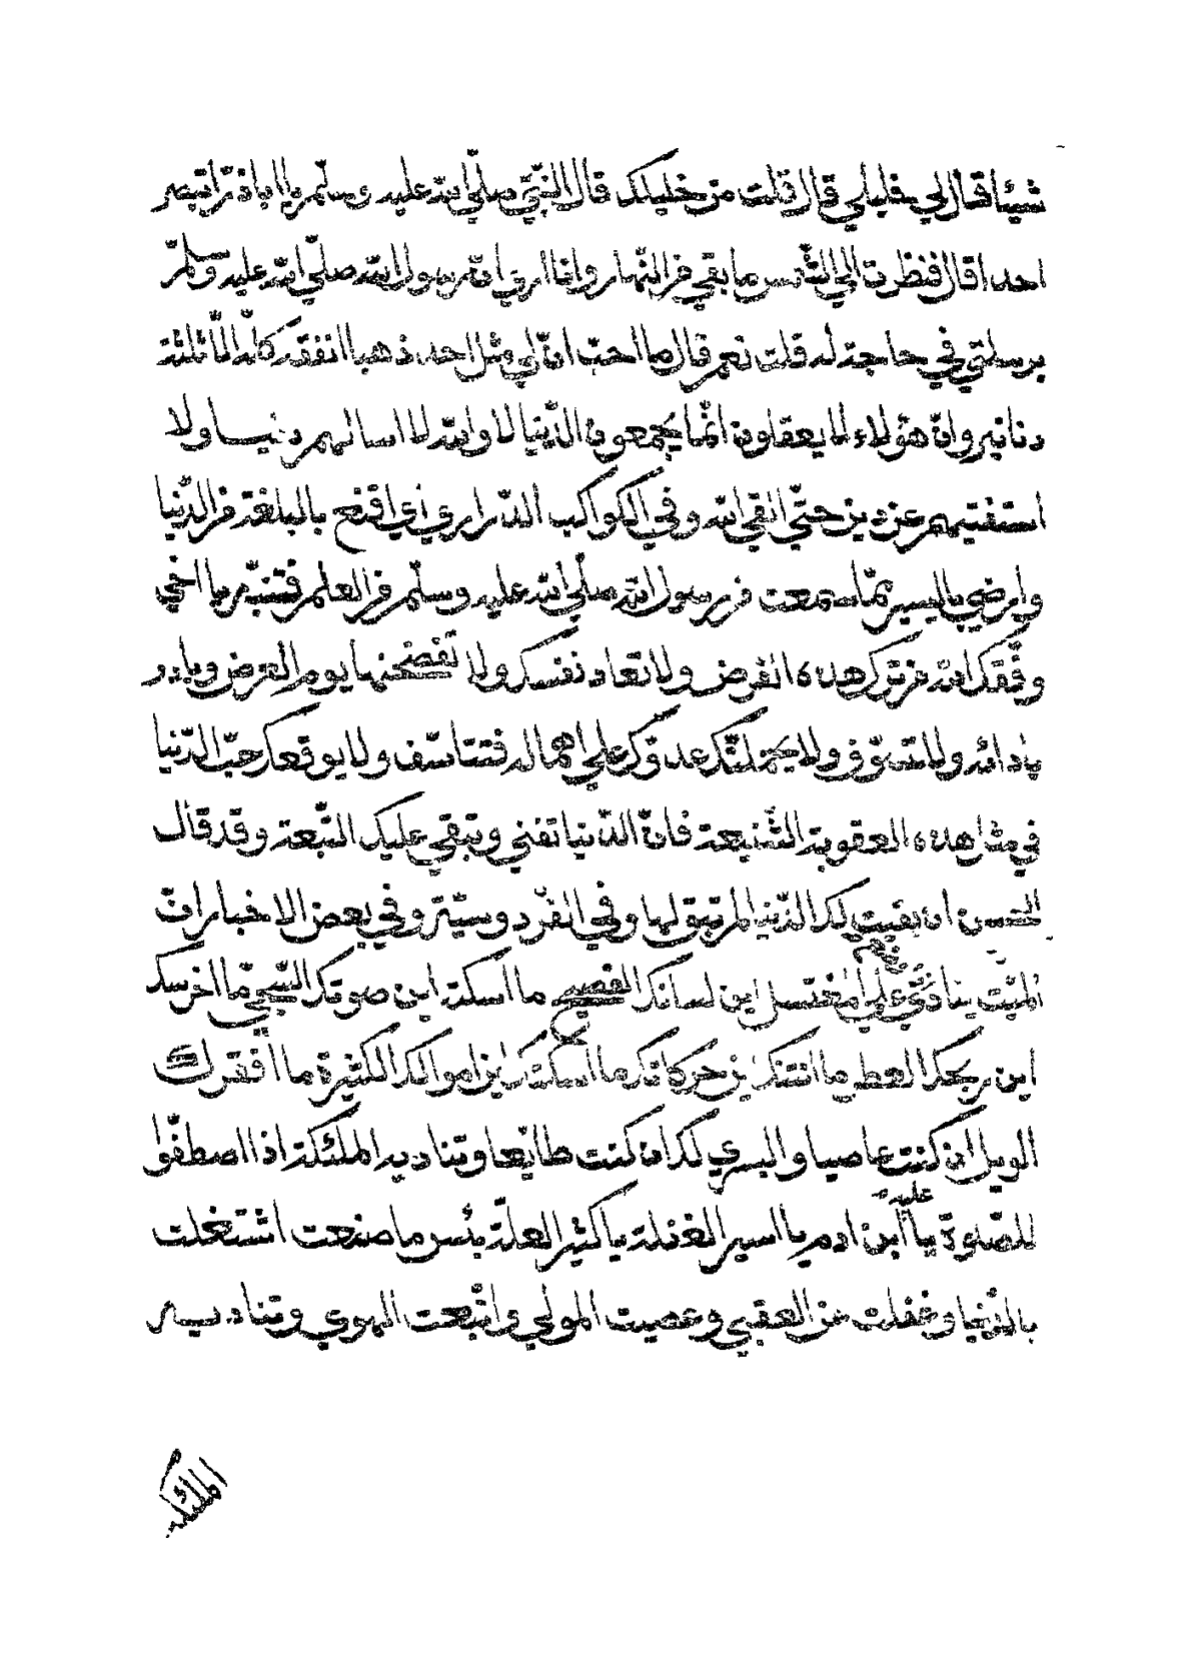 شيئا قال لي خليلي قال قلت من خليلك قال النبيّ صلّي الله عليه وسلّم يا اباذرّ اتبصر
احدا قال فنظرت الي الشّمس ما بقي من النّهار وانا اري انّ رسول الله صلّي الله عليه وسلّم
يرسلني في حاجة له قلت نعم قال ما احبّ انّ لي مثل احد ذهبا انفقه كلّه الّا ثلثة
دنانير وانّ هؤلاء لا يعقلون انّما يجمعون الدّنيا لا والله لا اسالهم دنيا ولا
استفتيهم عن دين حتّي القي الله وفي الكواكب الدّراري اي اقنع بالبلغة من الدّنيا
وارضي باليسير ممّا سمعت من رسول الله صلّي الله عليه وسلّم من العلم فتنبّه يا اخي
وفّقك الله من ترك هذه الفرض ولا تعاد نفسك ولا تفضحنها يوم العرض وبادر
بادائه ولا تسوّف ولا يحملنّك عدوّك علي اهماله فتتاسّف ولا يوقعك حبّ الدّنيا
في مثل هذه العقوبة الشّنيعة فانّ الدّنيا تفني وتبقي عليك التّبعة وقد قال
الحسن ان بقيت لك الدّنيا لم تبق لها وفي الفردوسيّة وفي بعض الاخبار انّ
الميّت ينادي علي المغتسل اين لسانك الفصيح ما اسكته اين صوتك الشّجيّ ما اخرسك
اين ريحك العطر ما انتنك اين حركاتك ما اسكتك اين اموالك الكثيرة ما افقرك
الويل ان كنت عاصيا واليسري لك ان كنت طائعا وتناديه الملئكة اذا اصطفّوا
للصّلوة عليه يا ابن ادم يا اسير الغفلة يا كثير العلّة بئس ما صنعت اشتغلت
بالدّنيا وغفلت عن العقبي وعصيت المولي واتّبعت الهوي وتناديه
الملئكة